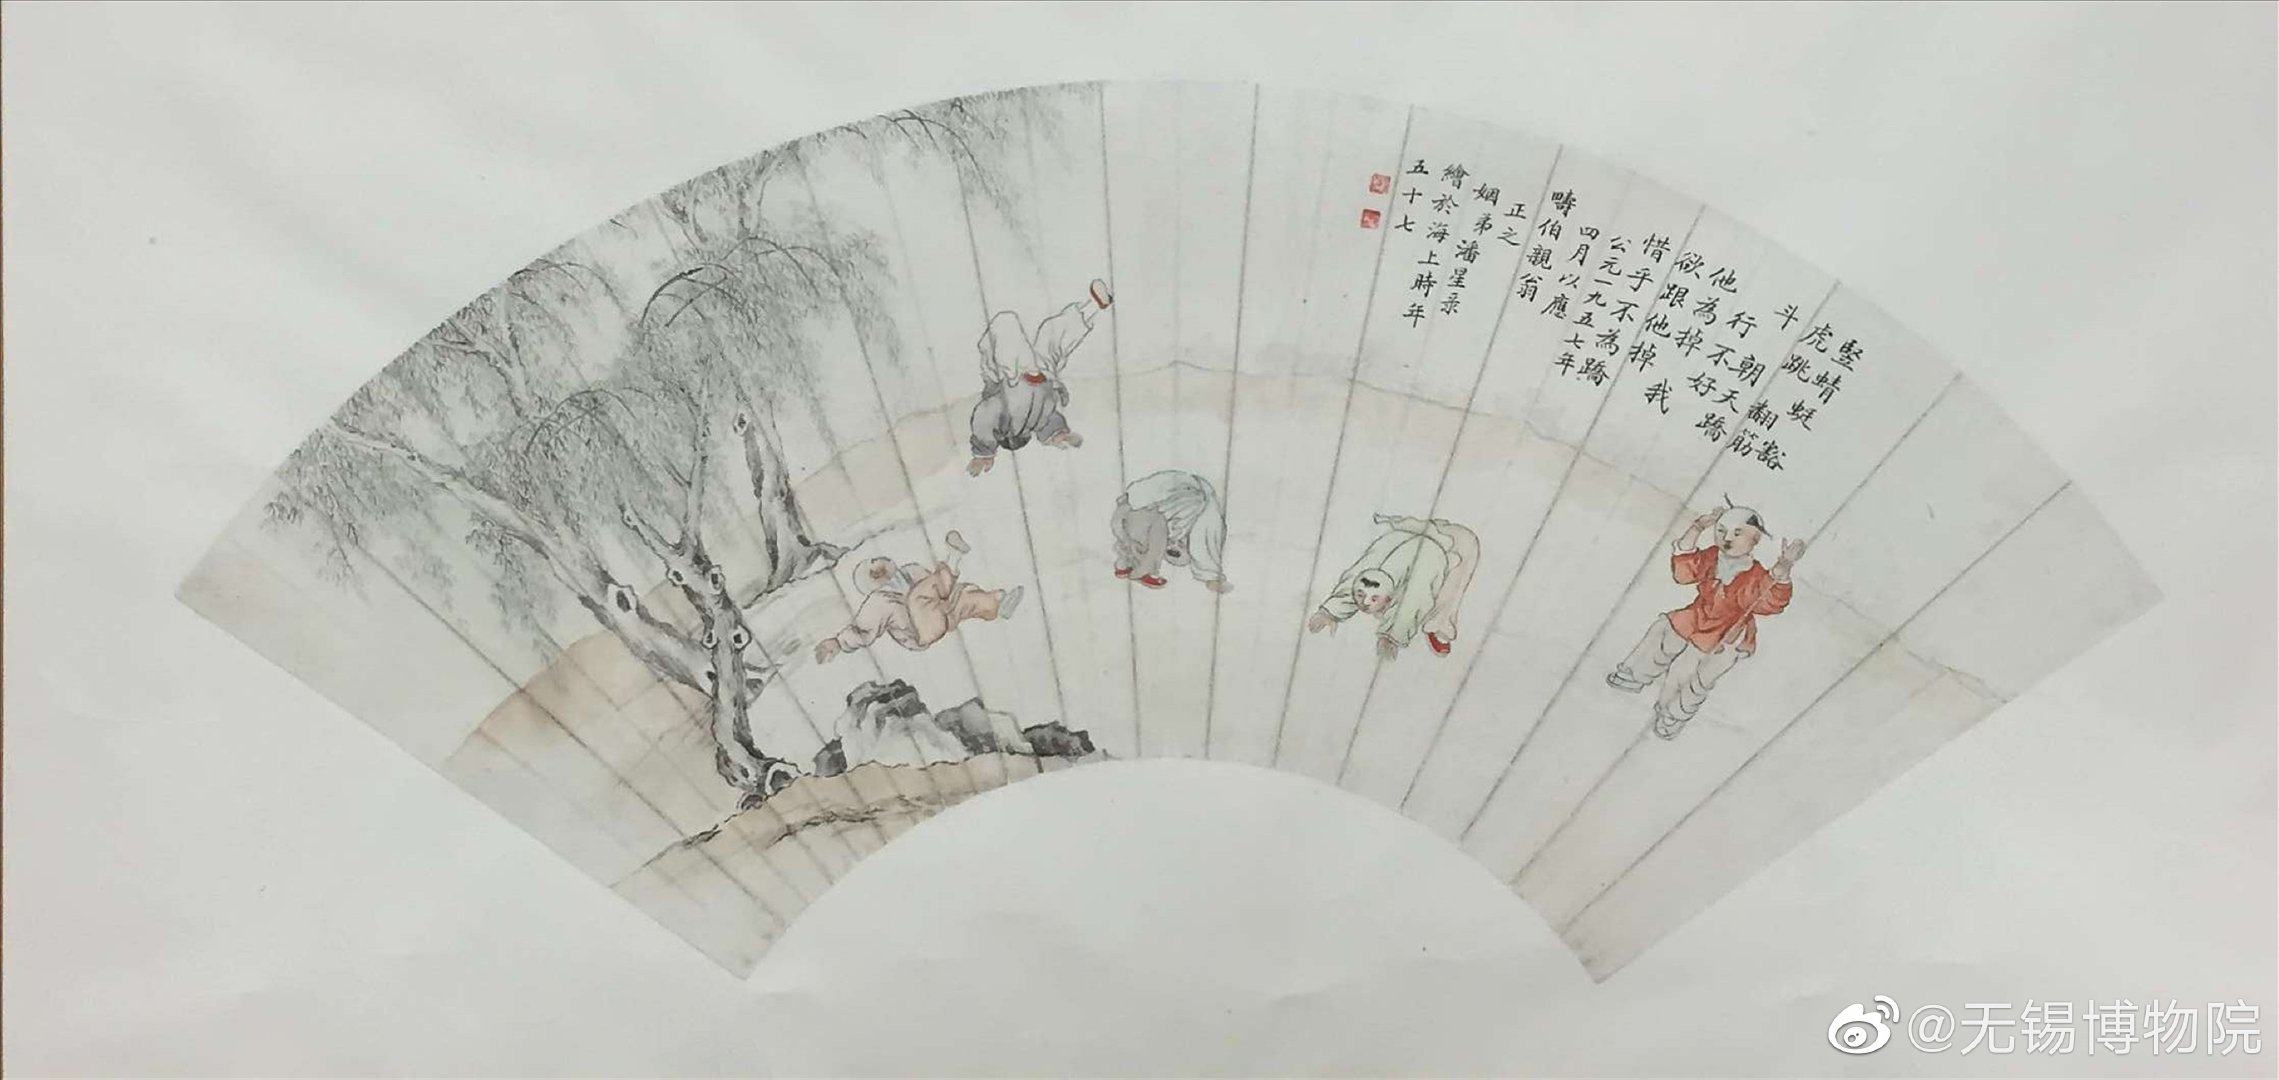 豎蜻蜓豁
虎跳翻筋
斗朝天蹻
行不好
他為掉我
欲跟他掉
惜乎不為蹻
公元一九五七年
四月以應
疇伯親翁
正之
姻弟潘星
繪於海上時年
五十七
@无锡博物院